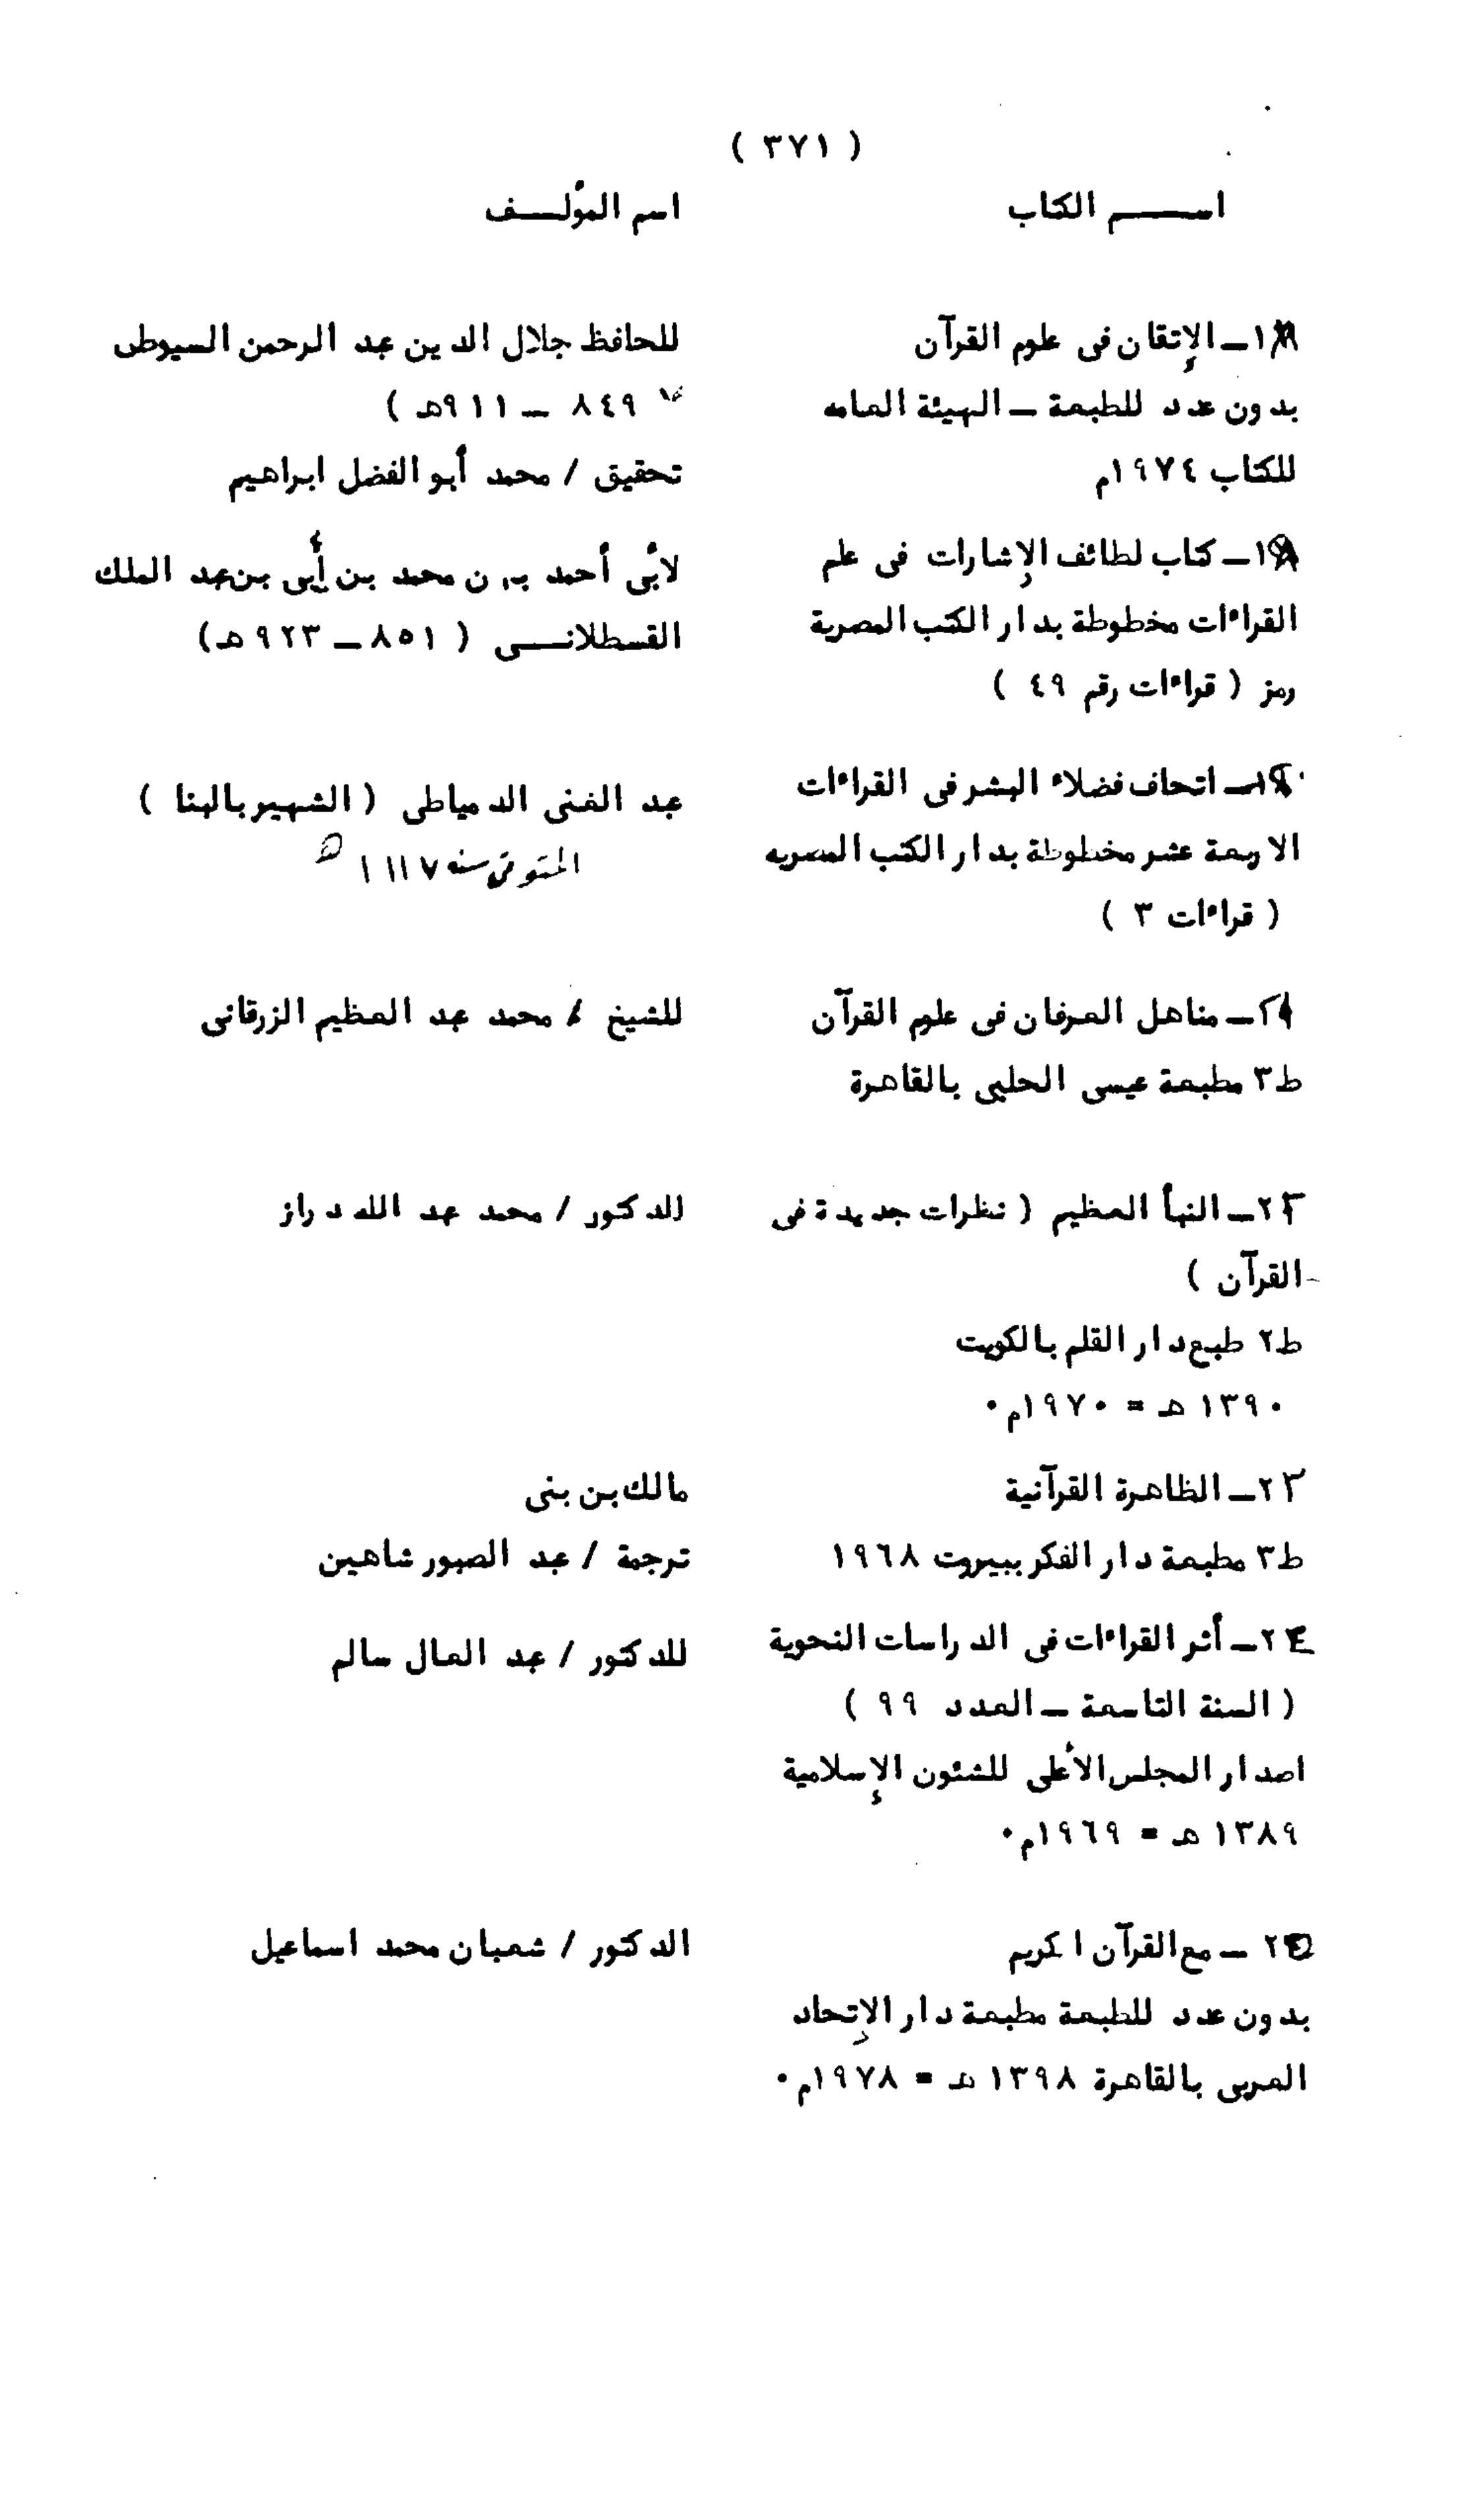 ( ٣٧١ )
اســـم الكتاب
اسم المؤلـــف
١٨ـ الإتقان فى علوم القرآن
بدون عدد للطبعة ــ الهيئة العامه
للكتاب ١٩٧٤م
للحافظ جلال الدين عبد الرحمن السيوطى
٨٤٩ ــ ٩١١هـ )
تحقيق / محمد أبو الفضل ابراهيم
١٩ـ كتاب لطائف الإشارات فى علم
القراءات مخطوطة بدار الكتب المصرية
رمز ( قراءات رقم ٤٩ )
لأبى أحمد بن محمد بن أبى بن عبد الملك
القسطلانـــى ( ٨٥١ ــ ٩٢٣هـ )
ـ اتحاف فضلاء البشر فى القراءات
الاربعة عشر مخطوطة بدار الكتب المصريه
( قراءات ٣ )
عبد الغنى الدمياطى ( الشهير بالبنا )
المتوفى سنه ١١١٧ هـ
ـ مناهل العرفان فى علوم القرآن
ط٣ مطبعة عيسى الحلبى بالقاهرة
للشيخ / محمد عبد العظيم الزرقانى
٢٢ـ النبأ العظيم ( نظرات جديدة فى
القرآن )
ط٢ طبع دار القلم بالكويت
١٣٩٠ هـ = ١٩٧٠م٠
للدكتور / محمد عبد الله دراز
٢٣ـ الظاهرة القرآنية
ط٣ مطبعة دار الفكر ببيروت ١٩٦٨
مالك بن بنى
ترجمة / عبد الصبور شاهين
٢٤ـ أثر القراءات فى الدراسات النحوية
( السنة التاسعة ــ العدد ٩٩ )
اصدار المجلس الأعلى للشئون الإسلامية
١٣٨٩ هـ = ١٩٦٩م٠
للدكتور / عبد العال سالم
٢٥ ــ مع القرآن ا كريم
بدون عدد للطبعة مطبعة دار الإتحاد
العربى بالقاهرة ١٣٩٨ هـ = ١٩٧٨م٠
الدكتور / شعبان محمد اسماعيل